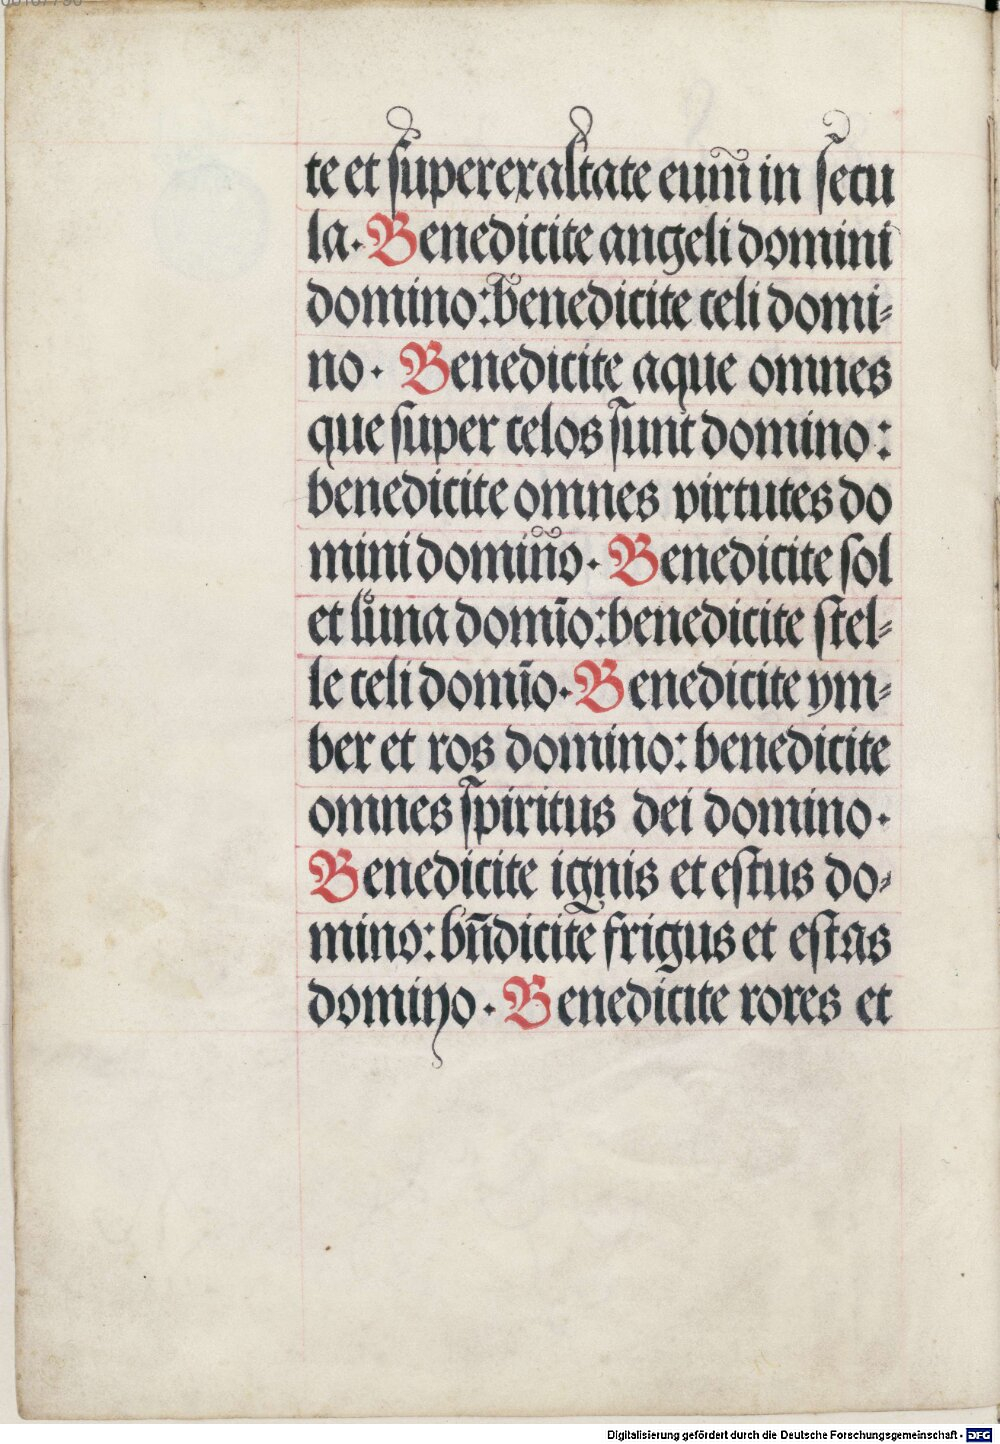 te et ſuperexaltate eum̄ in ſecu
la. Benedicite angeli domini
domino: benedicite celi domi-
no. Benedicite aque omnes
que ſuper celos ſunt domino:
benedicite omnes virtutes do
mini domino. Benedicite ſol
et luna domīo: benedicite ſtel-
le celi domīo. Benedicite ym-
ber et ros domino: benedicite
omnes ſpiritus dei domino.
Benedicite ignis et eſtus do-
mino: bn̄dicite frigus et eſtas
domino. Benedicite rores et
Digitalisierung gefördert durch die Deutsche Forschungsgemeinschaft - DFG